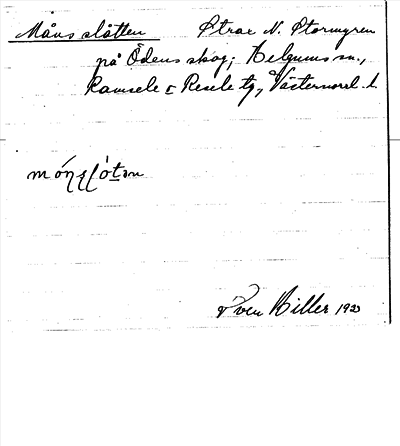 Måns slåtten Strax N. Stormyren
på Ödens skog; Helgums sn.,
Ramsele o Resele tg, Västernorrl. l.
Sven Hiller 1920